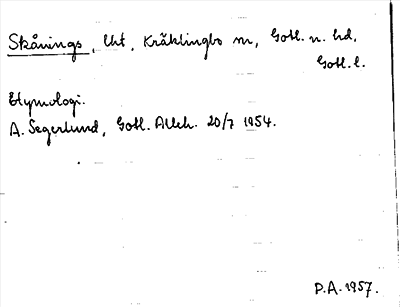 Skånings, Ukt, Kräklingbo m, Gotl. n. hd,
Gotl. l.
Etymologi.
A. Segerlund, Gotl. Alleh. 20/7 1954.
P.A. 1957.